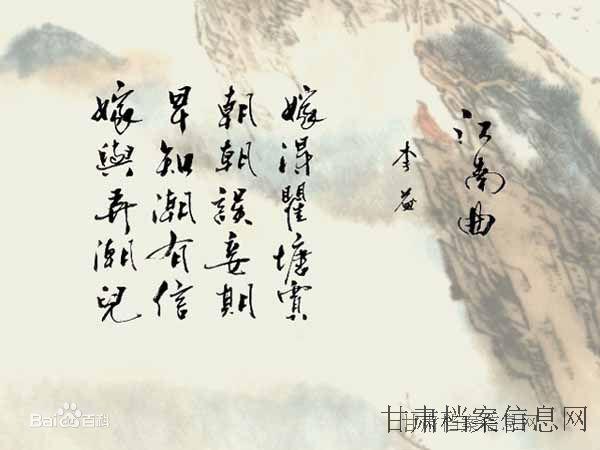 江南曲
李益
嫁得瞿塘賈
朝朝誤妾期
早知潮有信
嫁與弄潮兒
Bai百科
甘肃档案信息网
甘肃档案信息网